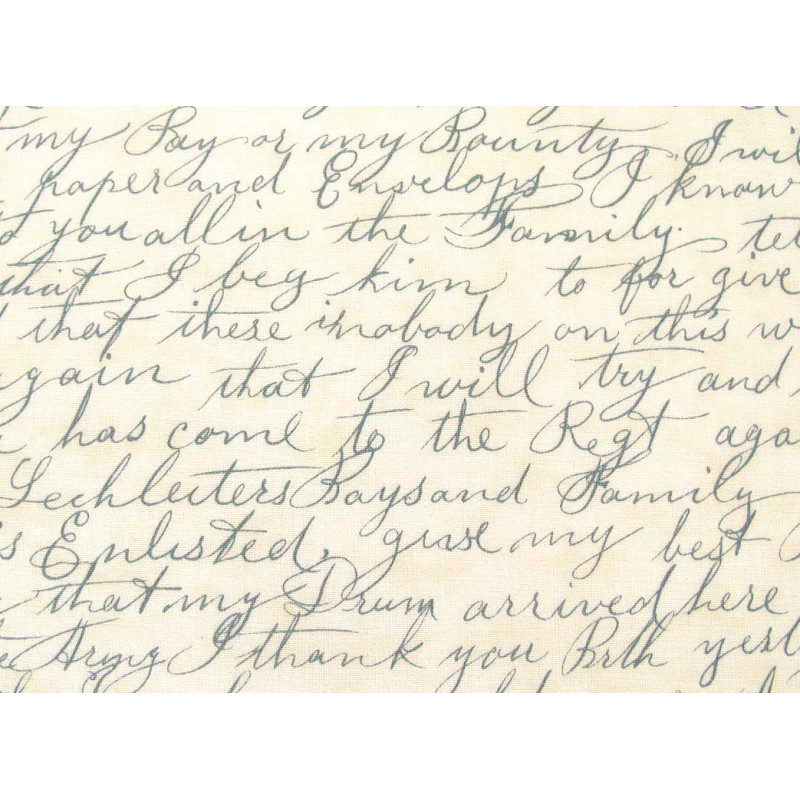 my Pay or my Bounty, I wil
paper and Envelops I know
you all in the Family. tel
that I beg him to for give
that these is nobody on this w
again that I will try and
has come to the Regt aga
Lechleiters Boys and Family
Enlisted, give my best
that my Drum arrived here
Army I thank you Brth yest